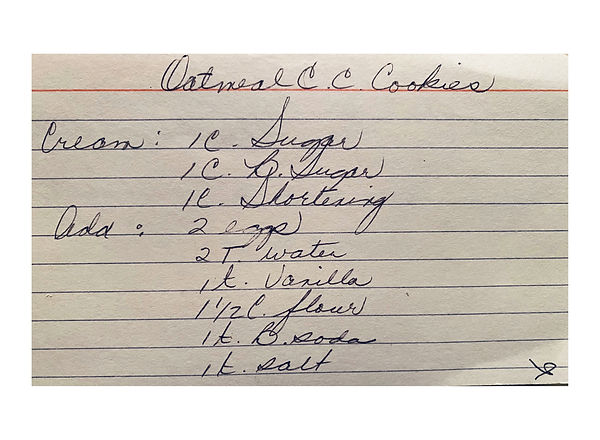 Oatmeal C.C. Cookies
Cream: 1C. Sugar
1C. B. Sugar
1C. Shortening
Add: 2 eggs
2 T. water
1 t. Vanilla
1 1/2 C. flour
1 t. B. soda
1 t. salt